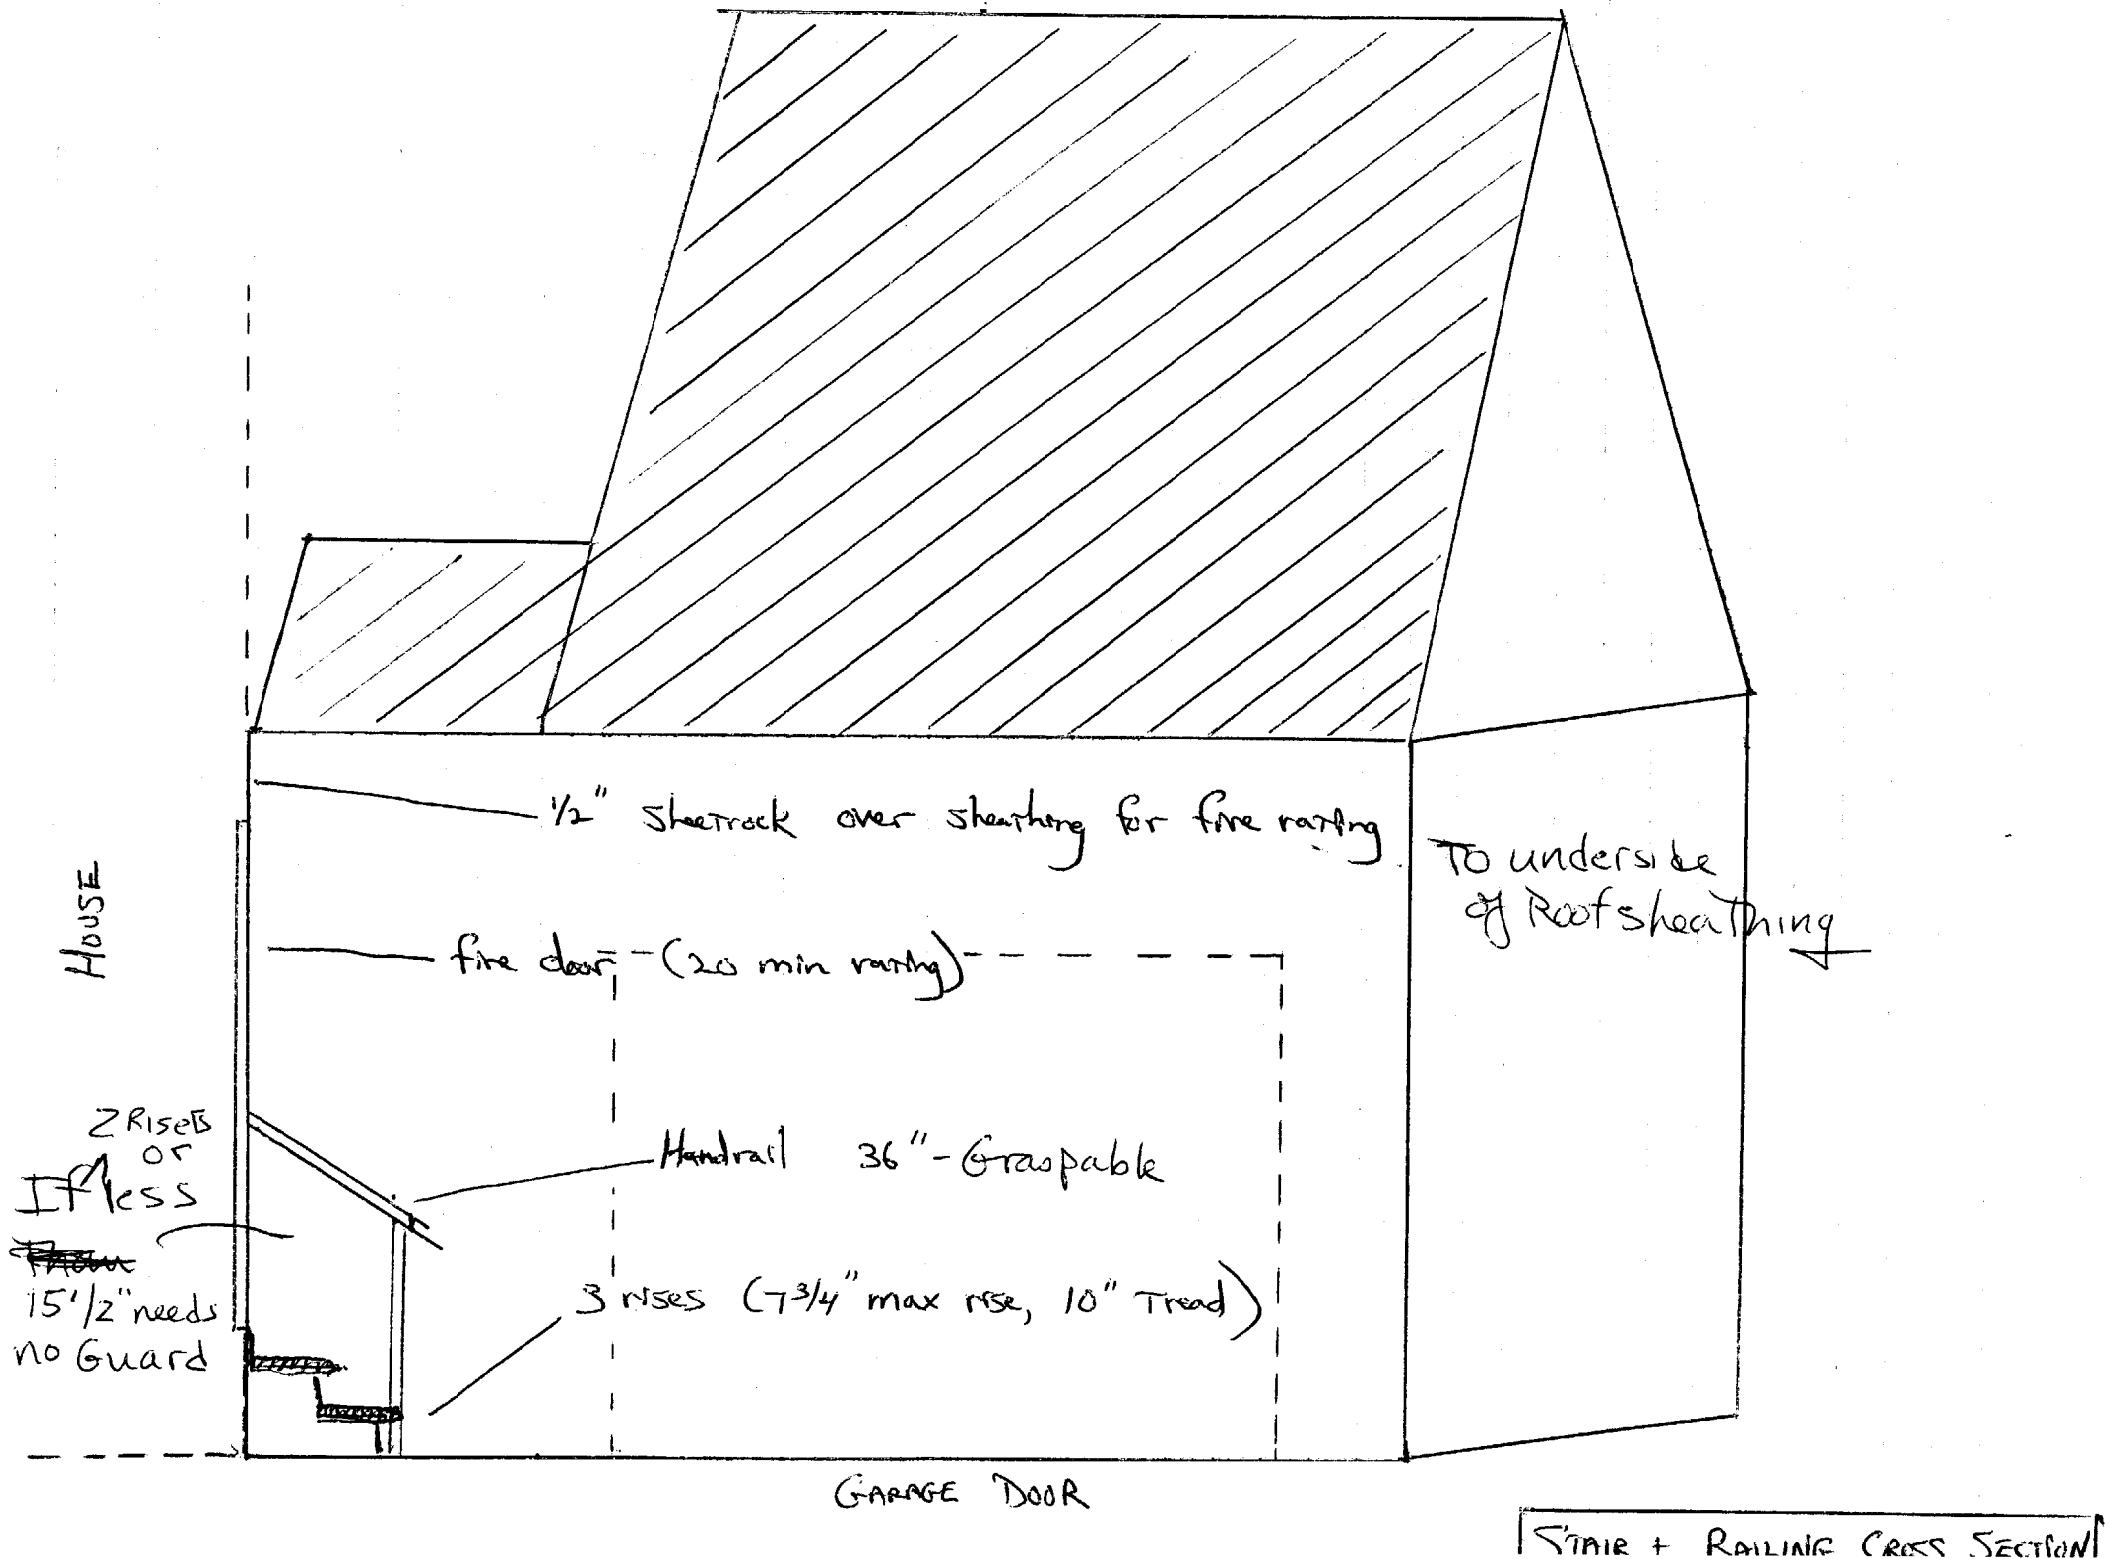 1/2" sheetrock over sheathing for fire rating
To underside
of Roof sheathing
HOUSE
fire door (20 min rating)
2 Rises
or
If less
15 1/2" needs
no Guard
Handrail 36" - Graspable
3 rises (7 3/4" max rise, 10" Tread)
GARAGE DOOR
STAIR + RAILING CROSS SECTION